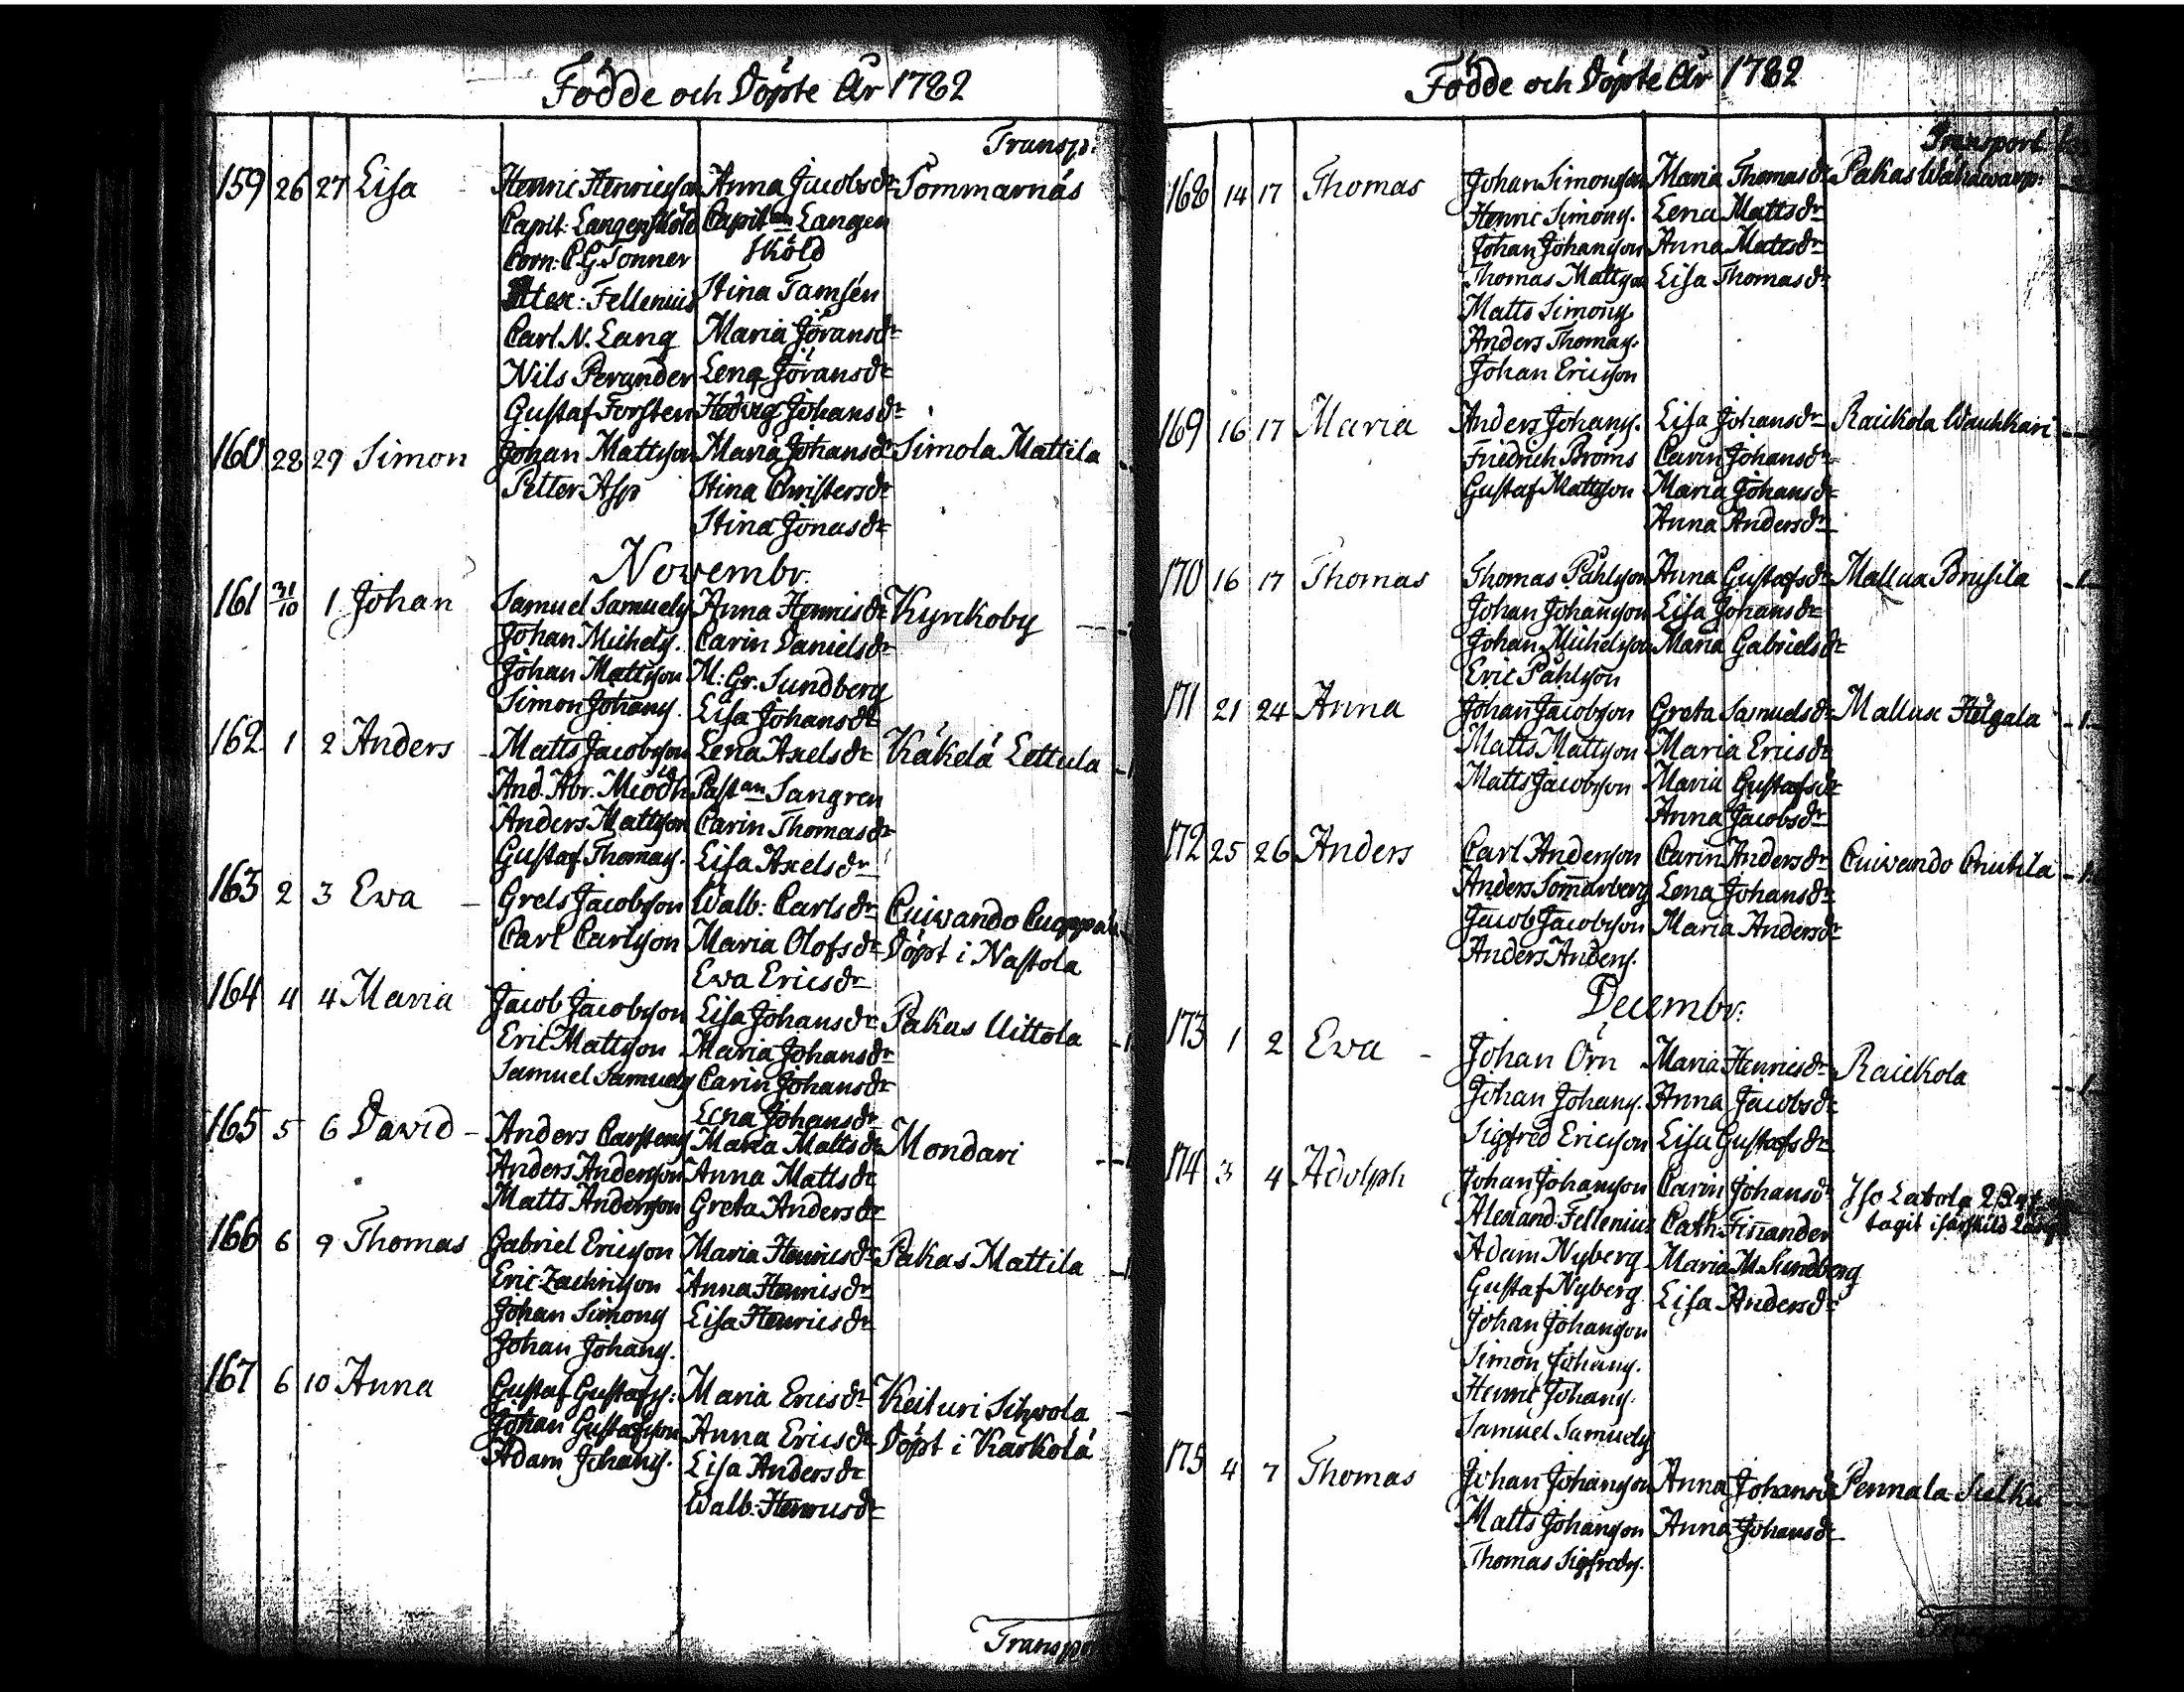 Födde och Döpte År 1782
Transp:
159 26 27 Lisa Henric Henricsson Anna Jacobsdr Sommarnäs
Capit: Langenskiöld Capitan Langen
Corn: C.G. Tonner Skiöld
Alex: Fellenius Stina Tamsén
Carl N. Lang Maria Jöransdr
Nils Perander Lena Jöransdr
Gustaf Forsten Hedvig Johansdr
160 28 29 Simon Johan Mattsson Maria Johansdr Simola Mattila
Petter Asp Stina Christersdr
Stina Jonasdr
Novembr.
161 31/10 1 Johan Samuel Samuels. Anna Henricsdr Kyrckoby
Johan Michels. Carin Danielsdr
Johan Mattsson M: Gr: Sundberg
Simon Johans. Lisa Johansdr
162 1 2 Anders Matts Jacobsson Lena Axelsdr Käkelä Lettula
And. Abr. Miödh Pastan Sangren
Anders Mattsson Carin Thomasdr
Gustaf Thomas. Lisa Axelsdr
163 2 3 Ewa Grels Jacobsson Walb: Carlsdr Cuivando
Carl Carlsson Maria Olofsdr Döpt i Nastola
Ewa Ericsdr
164 4 4 Maria Jacob Jacobsson Lisa Johansdr Pakas Uittola
Eric Mattsson Maria Johansdr
Samuel Samuels Carin Johansdr
Lena Johansdr
165 5 6 David Anders Carstens Maria Mattsdr Mondari
Anders Andersson Anna Mattsdr
Matts Andersson Greta Andersdr
166 6 9 Thomas Gabriel Ericsson Maria Henricsdr Pakas Mattila
Eric Zachrisson Anna Henricsdr
Johan Simons Lisa Henricsdr
Johan Johans.
167 6 10 Anna Gustaf Gustafs: Maria Ericsdr Keituri Sihvola
Johan Gustafsson Anna Ericsdr Döpt i Kärkölä
Adam Johans. Lisa Andersdr
Walb: Henricsdr
Transpo
Födde och Döpte År 1782
Transport
168 14 17 Thomas Johan Simonsson Maria Thomasdr Pakas
Henric Simons. Lena Mattsdr
Johan Johansson Anna Mattsdr
Thomas Mattsson Lisa Thomasdr
Matts Simons.
Anders Thomas.
Johan Ericsson
169 16 17 Maria Anders Johans. Lisa Johansdr Raickola Wauhkari
Friedrich Broms Carin Johansdr
Gustaf Mattsson Maria Johansdr
Anna Andersdr
170 16 17 Thomas Thomas Påhlsson Anna Gustafsdr Mallua Prusila
Johan Johansson Lisa Johansdr
Johan Michelsson Maria Gabrielsdr
Eric Påhlsson
171 21 24 Anna Johan Jacobsson Greta Samuelsdr Mallua Helgala
Matts Mattsson Maria Ericsdr
Matts Jacobsson Maria Gustafsdr
Anna Jacobsdr
172 25 26 Anders Carl Andersson Carin Andersdr Cuivando Cnutila
Anders Som̅arberg Lena Johansdr
Jacob Jacobsson Maria Andersdr
Anders Anders.
Decembr:
173 1 2 Ewa Johan Örn Maria Henricsdr Raickola
Johan Johans. Anna Jacobsdr
Sigfred Ericsson Lisa Gustafsdr
174 3 4 Adolph Johan Johansson Carin Johansdr Iso Labola
Alexand: Fellenius Cath: Fin̅ander tagit
Adam Nyberg Maria M. Sundberg
Gustaf Nyberg Lisa Andersdr
Johan Johansson
Simon Johans.
Henric Johans.
Samuel Samuels
175 4 7 Thomas Johan Johansson Anna Johansdr Pennala
Matts Johansson Anna Johansdr
Thomas Sigfreds.